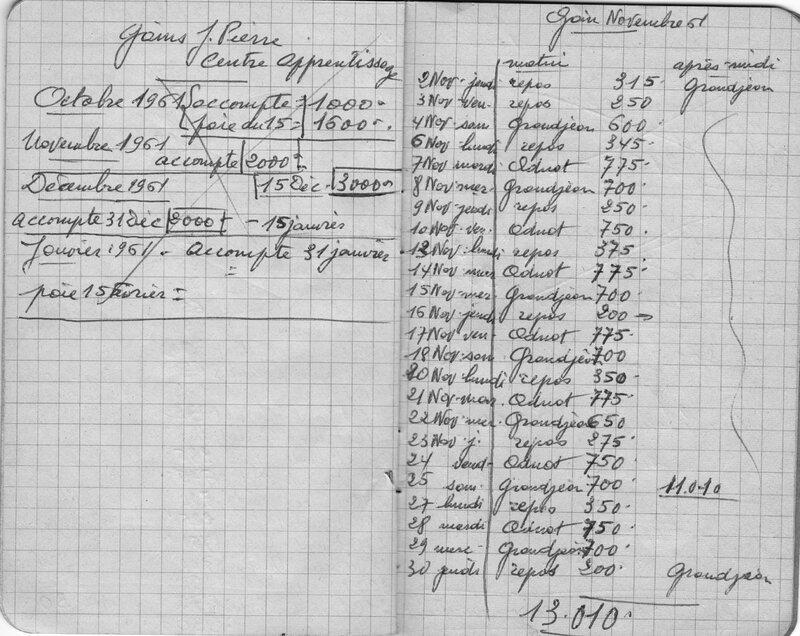 Gains J. Pierre
Centre Apprentissage
Octobre 1961 accompte = 1000
paie du 15 = 1600
Novembre 1961
accompte 2000
Décembre 1961 15 Déc. 3000
accompte 31 Déc 2000 - 15 janvier
Janvier 1961 - accompte 31 janvier
=
paie 15 Février =
Gain Novembre 61
matin après-midi
2 Nov. jeudi repos 315 Grandjeon
3 Nov. ven. repos 250
4 Nov. sam Grandjeon 600
6 Nov. lundi repos 345
7 Nov. mardi Odnot 775
8 Nov. mer. Grandjeon 700
9 Nov. jeudi repos 250
10 Nov. ven. Odnot 750
13 Nov. lundi repos 375
14 Nov. mar Odnot 775
15 Nov. mer. Grandjeon 700
16 Nov. jeudi repos 200
17 Nov. ven. Odnot 775
18 Nov. sam. Grandjeon 700
20 Nov. lundi repos 350
21 Nov. mar. Odnot 775
22 Nov. mer. Grandjeon 650
23 Nov. j. repos 275
24 vend. Odnot 750
25 sam. Grandjeon 700 11.010
27 lundi repos 350
28 mardi Odnot 750
29 merc Grandjeon 700
30 jeudi repos 200 Grandjeon
13.010